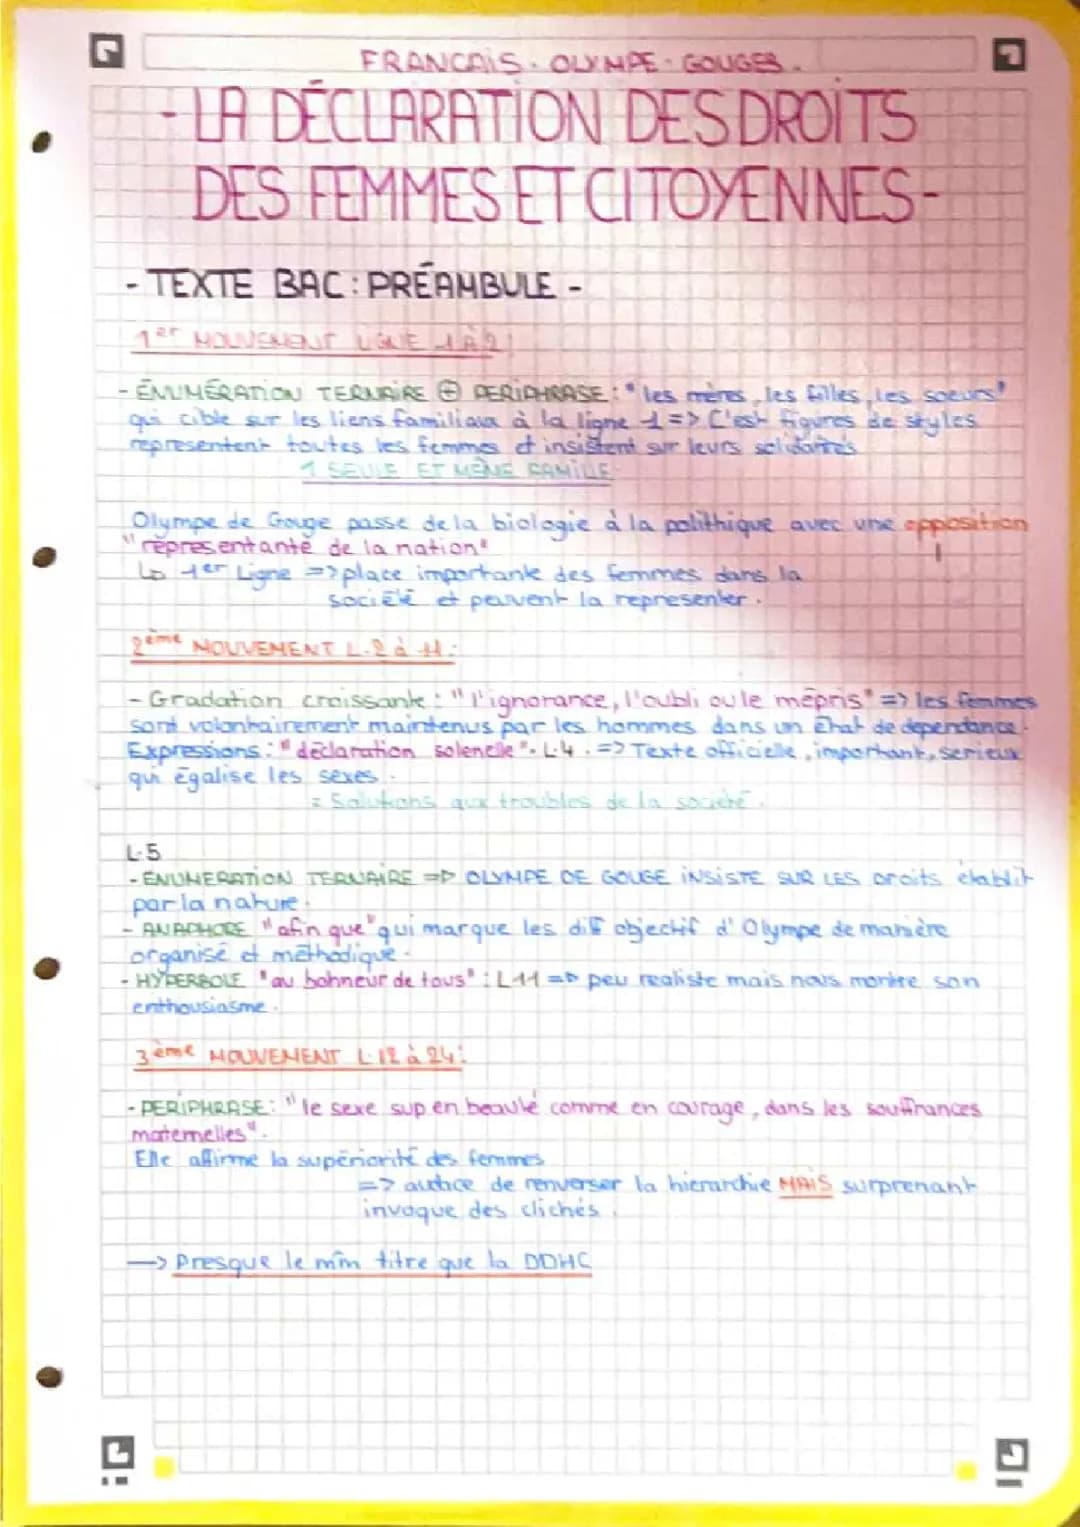 FRANCAIS. OLYMPE. GOUGES.
- LA DÉCLARATION DES DROITS
DES FEMMES ET CITOYENNES -
- TEXTE BAC : PRÉAMBULE -
1er MOUVEMENT LIGNE 1 À 2 :
- ÉNUMÉRATION TERNAIRE ⊕ PERIPHRASE : "les mères, les filles, les soeurs"
qui cible sur les liens familiaux à la ligne 1 => C'est figures de styles
representent toutes les femmes et insistent sur leurs solidarités
1 SEULE ET MÊME FAMILLE
Olympe de Gouge passe de la biologie à la polithique avec une opposition
"representante de la nation"
↳ 1er Ligne => place importante des femmes dans la
société et peuvent la representer.
2ème MOUVEMENT L.2 à 11 :
- Gradation croissante : "l'ignorance, l'oubli ou le mépris" => les femmes
sont volontairement maintenus par les hommes dans un état de dependance.
Expressions : "déclaration solenelle". L.4. => Texte officielle, important, serieux
qui égalise les sexes.
= Solutions aux troubles de la société.
L.5
- ENUMERATION TERNAIRE => OLYMPE DE GOUGE INSISTE SUR LES Droits établit
par la nature.
- ANAPHORE "afin que" qui marque les diff objectif d'Olympe de manière
organisé et méthodique.
- HYPERBOLE "au bohneur de tous" : L11 => peu realiste mais nous montre son
enthousiasme.
3ème MOUVEMENT L.12 à 24 :
- PERIPHRASE : "le sexe sup en beauté comme en courage, dans les souffrances
maternelles".
Elle affirme la supériorité des femmes
=> audace de renverser la hierarchie MAIS surprenant
invoque des clichés.
—> Presque le mm titre que la DDHC